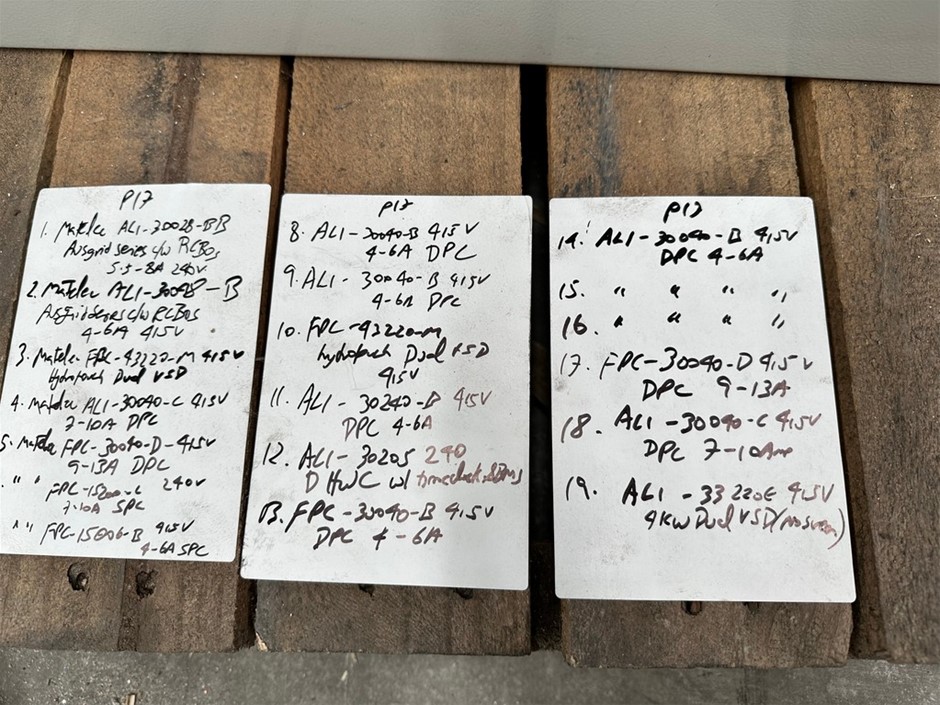 P17
1. Matelec ALI-30028-BB
Ausgrid series c/w RCBOs
5.5-8A 240V
2. Matelec ALI-30048-B
Ausgrid series c/w RCBOs
4-6A 415V
3. Matelec FPC-43220-M 415V
Hydrotouch Dual VSD
4. Matelec ALI-30040-C 415V
7-10A DPC
5. Matelec FPC-30040-D-415V
9-13A DPC
" " FPC-15200-C 240V
7-10A SPC
" " FPC-15006-B 415V
4-6A SPC
P17
8. ALI-30040-B 415V
4-6A DPC
9. ALI-30040-B 415V
4-6A DPC
10. FPC-43220-M
hydrotouch Dual VSD
415V
11. ALI-30240-B 415V
DPC 4-6A
12. ALI-30205 240
DHWC w/ timeclock
13. FPC-30040-B 415V
DPC 4-6A
P17
14. ALI-30040-B 415V
DPC 4-6A
15. " " " "
16. " " " "
17. FPC-30040-D 415V
DPC 9-13A
18. ALI-30040-C 415V
DPC 7-10Am
19. ALI-33220E 415V
4KW Dual VSD